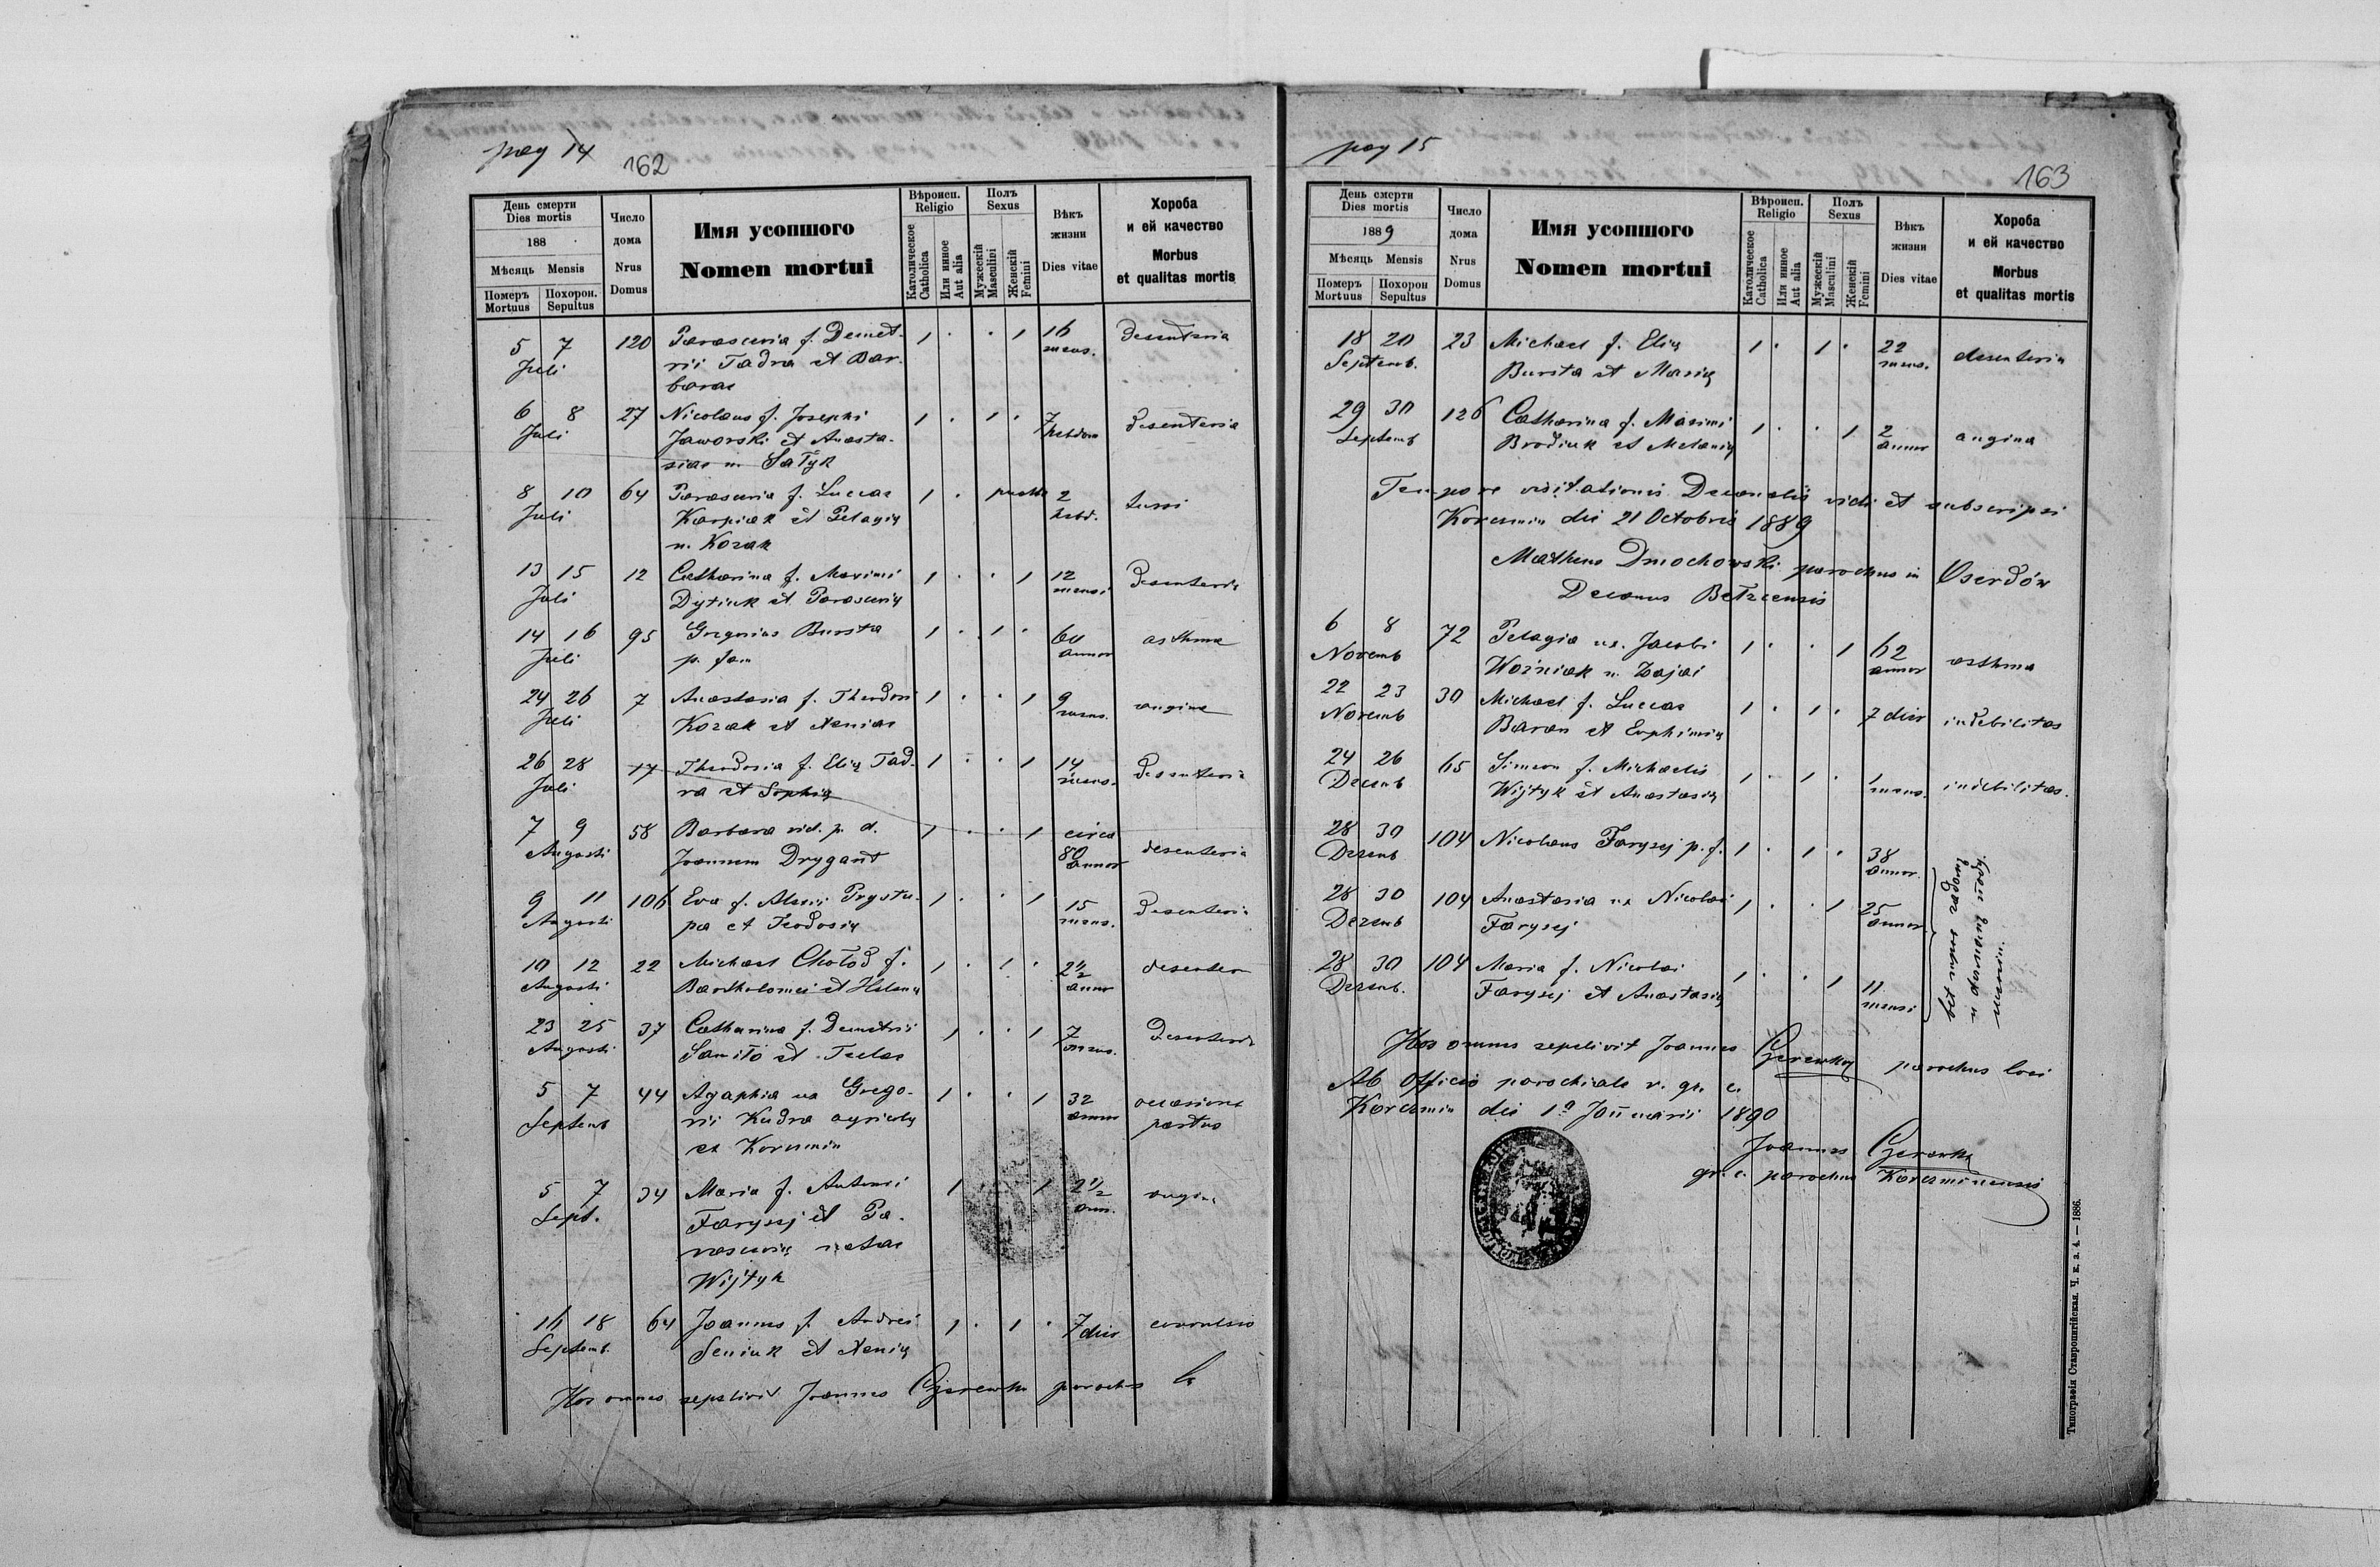 pag 14
162
День смерти
Dies mortis
188
Мѣсяць Mensis
Померъ Mortuus
Похорон. Sepultus
Число дома
Nrus Domus
Имя усопшого
Nomen mortui
Вѣроисп.
Religio
Католическое Catholica
Или инное Aut alia
Полъ
Sexus
Мужескій Masculini
Женскій Femini
Вѣкъ жизни
Dies vitae
Хороба
и ей качество
Morbus
et qualitas mortis
5 7 120 Parascevia f. Demet- 1 . . 1 16
Juli rii Tadra et Bar- mens. desenteria
barae
6 8 27 Nicolaus f. Josephi 1 . 1 . 7
Juli Jaworski et Anasta- hebdom desenteria
siae n. Sałyk
8 10 64 Parascevia f. Luccae 1 . 2
Juli Karpiak et Pelagię hebd. tussi
n. Kozak
13 15 12 Catharina f. Maximi 1 . . 1 12
Juli Dytiuk et Parascevię mensi desenteria
14 16 95 Gregorius Bursta 1 . 1 . 60
Juli p. fam annor asthma
24 26 7 Anastasia f. Theodori 1 . . 1 9
Juli Kozak et Xeniae mens. angina
26 28 17 Theodosia f. Elię Tad- 1 . . 1 14
Juli ra et Sophię mens. desenteria
7 9 58 Barbara vid. p. d. 1 . . 1 circa
Augusti Joannem Drygant 80 annor desenteria
9 11 106 Eva f. Alexii Prystu- 1 . . 1 15
Augusti pa et Teodosię mens. desenteria
10 12 22 Michael Chołod f. 1 . 1 . 2 1/2
Augusti Bartholomei et Helenę annor desenter
23 25 37 Catharina f. Demetrii 1 . . 1 7
Augusti Samiło et Teclae mens. desenteria
5 7 44 Agaphia ux Grego- 1 . . 1 32
Septemb rii Kudra agricolę annor occasione partus
ex Korczmin
5 7 34 Maria f. Antonii 1 1 2 1/2
Sept. Farysej et Pa- ann. angina
rascevię natae
Wijtyk
16 18 64 Joannes f. Andrei 1 . 1 . 7 dier convulsio
Septemb. Seniuk et Xenię
Hos omnes sepelivit Joannes parochus
pag 15
163
День смерти
Dies mortis
1889
Мѣсяць Mensis
Померъ Mortuus
Похорон Sepultus
Число дома
Nrus Domus
Имя усопшого
Nomen mortui
Вѣроисп.
Religio
Католическое Catholica
Или инное Aut alia
Полъ
Sexus
Мужескій Masculini
Женскій Femini
Вѣкъ жизни
Dies vitae
Хороба
и ей качество
Morbus
et qualitas mortis
18 20 23 Michael f. Elię 1 . 1 . 22
Septemb. Bursta et Marię mens. desenteria
29 30 126 Catharina f. Maximi 1 . . 1 2
Septemb Brodiuk et Melanię annor angina
Tempore visitationis Decanalis vidi et subscripsi
Korczmin die 21 Octobris 1889
Matheus Dmochowski parochus in Oserdów
Decanus Bełzcensis
6 8 72 Pelagia ux. Jacobi 1 . . 1 62
Novemb Woźniak n. Zajac annor asthma
22 23 30 Michael f. Luccae 1 . 1 . 7 dier indebilitas
Novemb Baran et Euphimię
24 26 65 Simeon f. Michaelis 1 . 1 . 1
Decemb Wijtyk et Anastasię mens. indebilitas.
28 30 104 Nicolaus Farysej p. f. 1 . 1 . 38
Dezemb annor.
28 30 104 Anastasia ux Nicolai 1 . . 1 25
Dezemb Farysej annor
28 30 104 Maria f. Nicolai 1 . . 1 11
Dezemb. Farysej et Anastasię mensi
Hos omnes sepelivit Joannes parochus loci
Ab Officio parochiale r. gr. c.
Korczmin die 1a Januarii 1890
Joannes
gr. c. parochus Korczminensis
Типографія Ставропигійская. Ч. к. з. 4. — 1886.